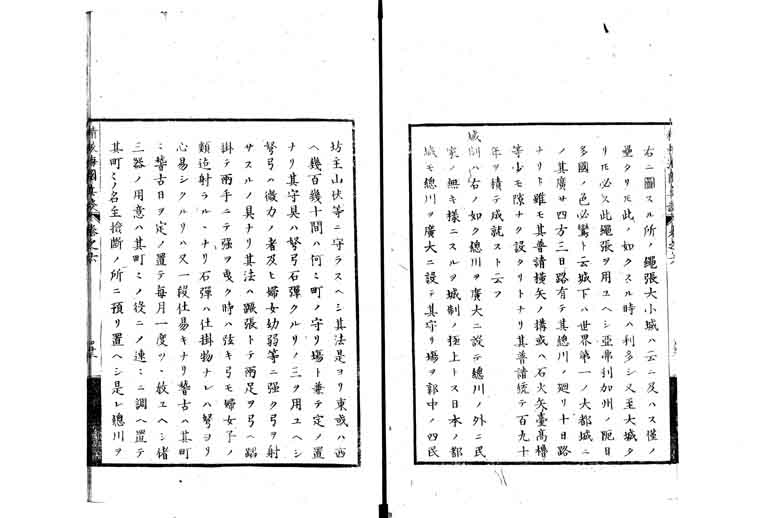 右ニ圖スル所ノ繩張大小城ハ云ニ及ハス僅ノ
壘タリモ此ノ如クスル時ハ利多シ又至大城タ
リモ必ス此繩張ヲ用ユヘシ亞弗利加州ノ厄日
多國ノ邑驚ト云城下ハ世界第一ノ大都城ニ
ノ其廣サ四方三日路有テ其總川ノ廻リ十日路
ナリト雖モ其普請橫矢ノ構或ハ石火矢臺高櫓
等少モ隙ナク設タリトナリ其普請統テ百九十
年ヲ積テ成就スト云フ
城制ハ右ノ如ク總川ヲ廣大ニ設テ總川ノ外ニ民
家ノ無キ樣ニスルヲ城制ノ極上トス日本ノ都
城モ總川ヲ廣大ニ設テ其守リ場ヲ郭中ノ四民
坊主山伏等ニ守ラスヘシ其法是ヨリ東或ハ西
ヘ幾百幾十間ハ何ミ町ノ守リ場ト兼テ定ノ置
ナリ其守具ハ弩弓石彈クルリノ三ヲ用ユヘシ
弩弓ハ微力ノ者及ヒ婦女幼弱等ニ强ク弓ヲ射
サスルノ具ナリ其法ハ蹶張トテ兩足ヲ弓ヘ蹈
掛テ兩手ニテ强ヲ曳ク時ハ弦キ弓モ婦女子ノ
類造射ラルヽナリ石彈ハ仕掛物ナレハ弩ヨリ
心易シクルリハ又一段仕易キナリ稽古ハ其町
ミ稽古日ヲ定ノ置テ每月一度ツヽ敎ユヘシ偖
三器ノ用意ハ其町ミノ役ニノ連ミニ調ヘ置テ
其町ミノ名主撿斷ノ所ニ預リ置ヘシ是レ總川ヲ